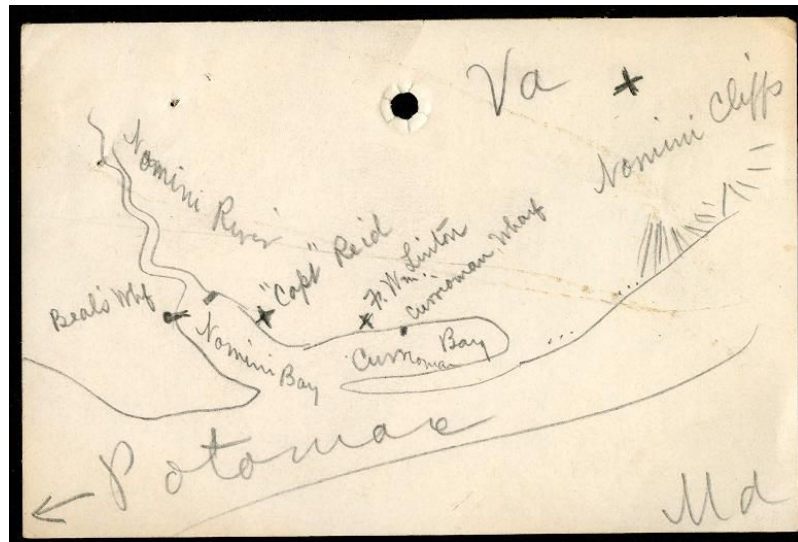 Va
Nomini Cliffs
Nomini River
"Capt" Reid
F. Wm. Linton
Curroman Wharf
Beal's Whf
Nomini Bay
Curroman Bay
Potomac
Md